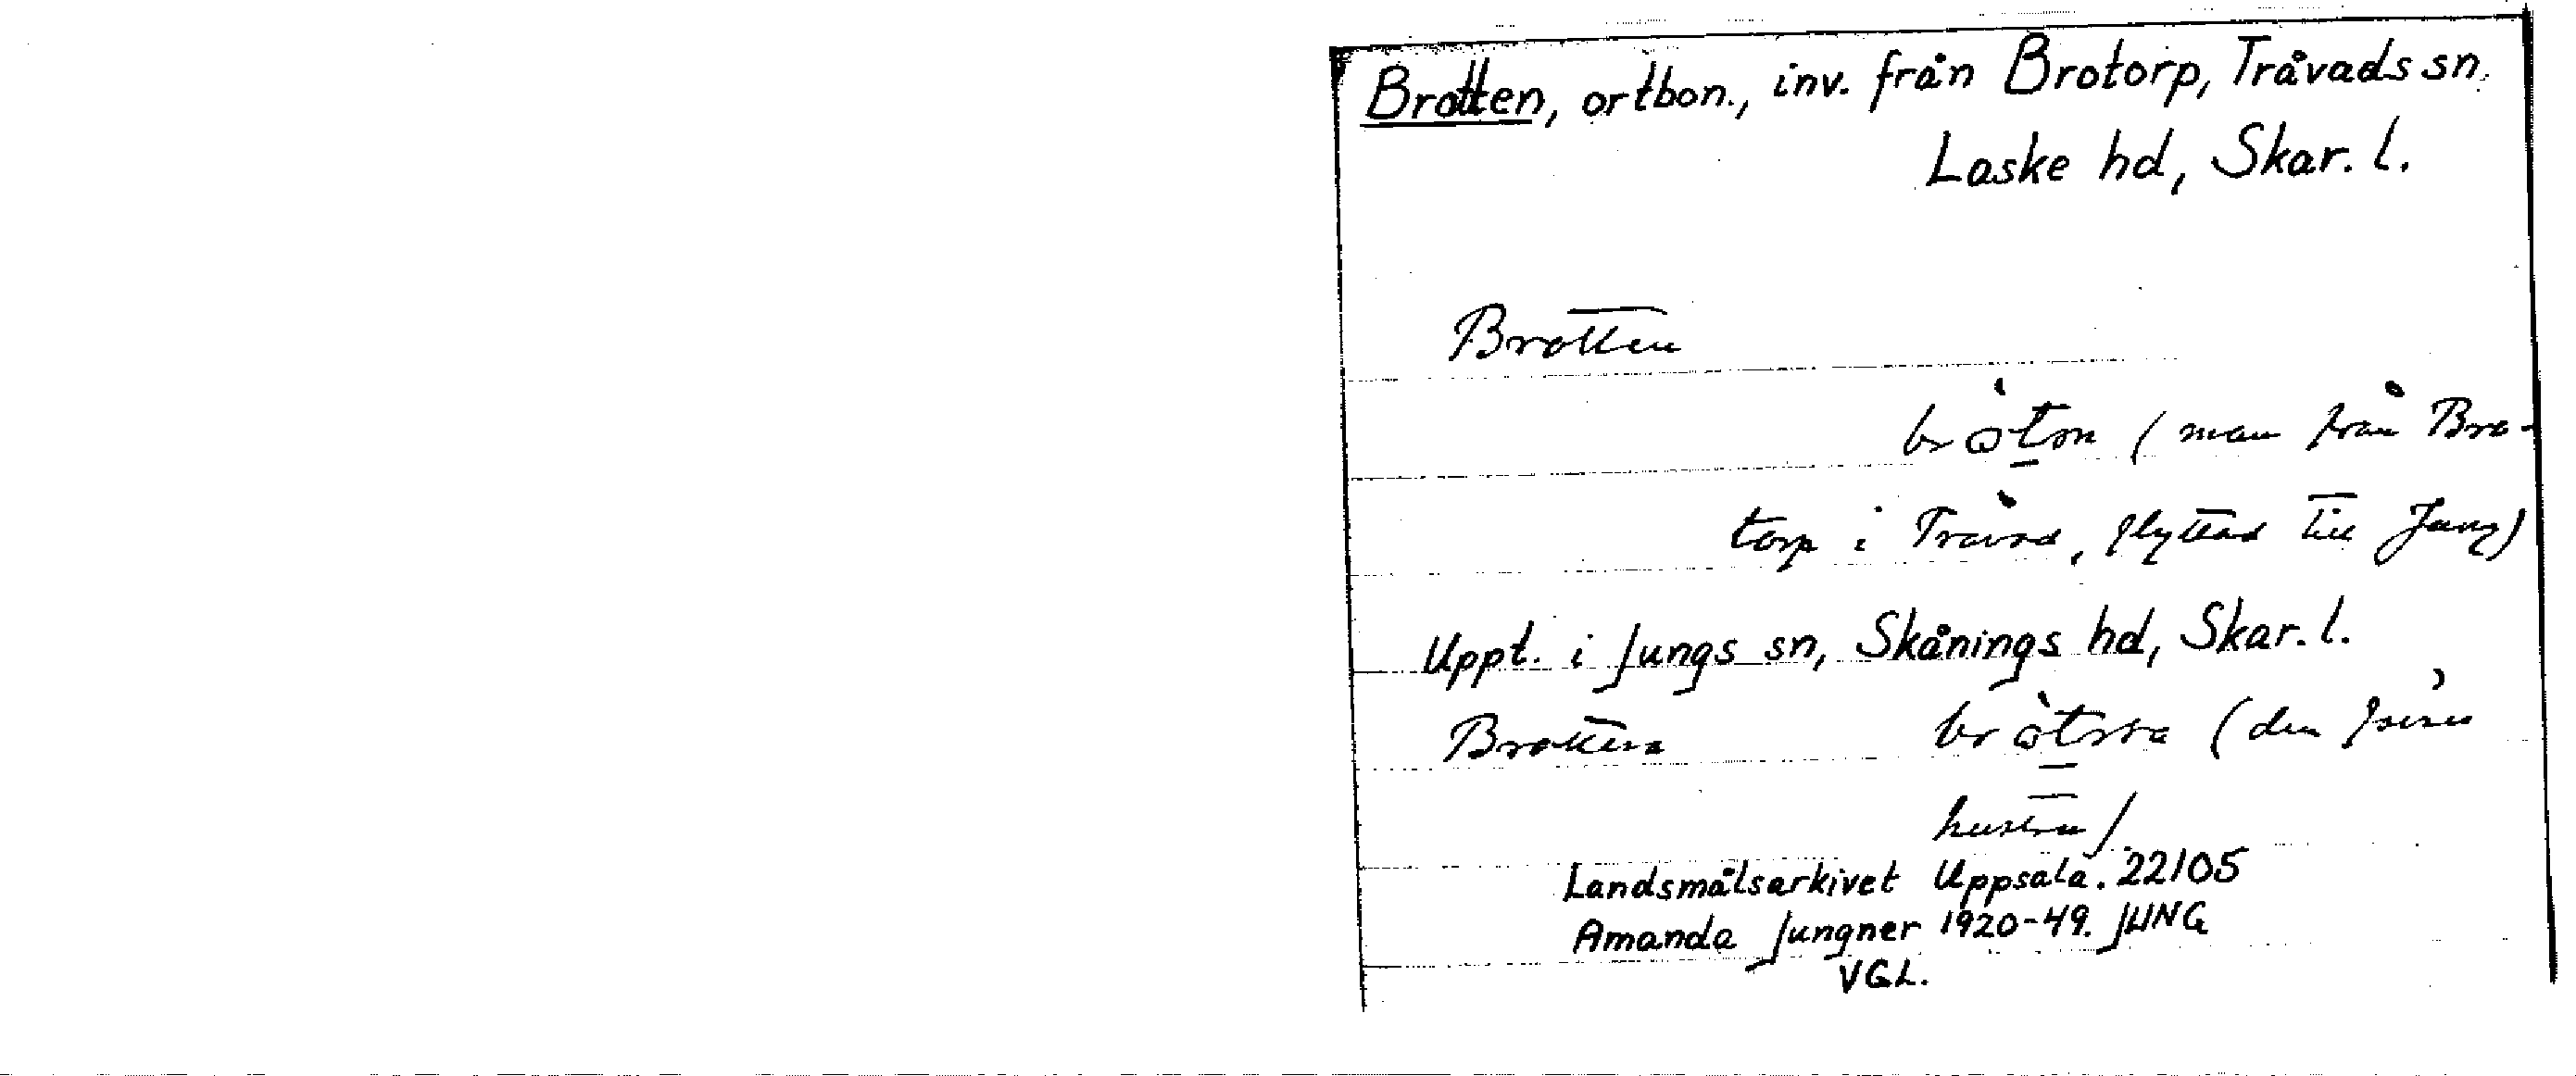 Brotten, ortbon., inv. från Brotorp, Tråvads sn.
Laske hd, Skar. l.
Brotten
(man från Bro-
torp i Tråvad, flyttad till Jung)
Uppt. i Jungs sn, Skånings hd, Skar. l.
Brottens (den förres
hustru)
Landsmålsarkivet Uppsala. 22105
Amanda Jungner 1920-49. JUNG
VGL.